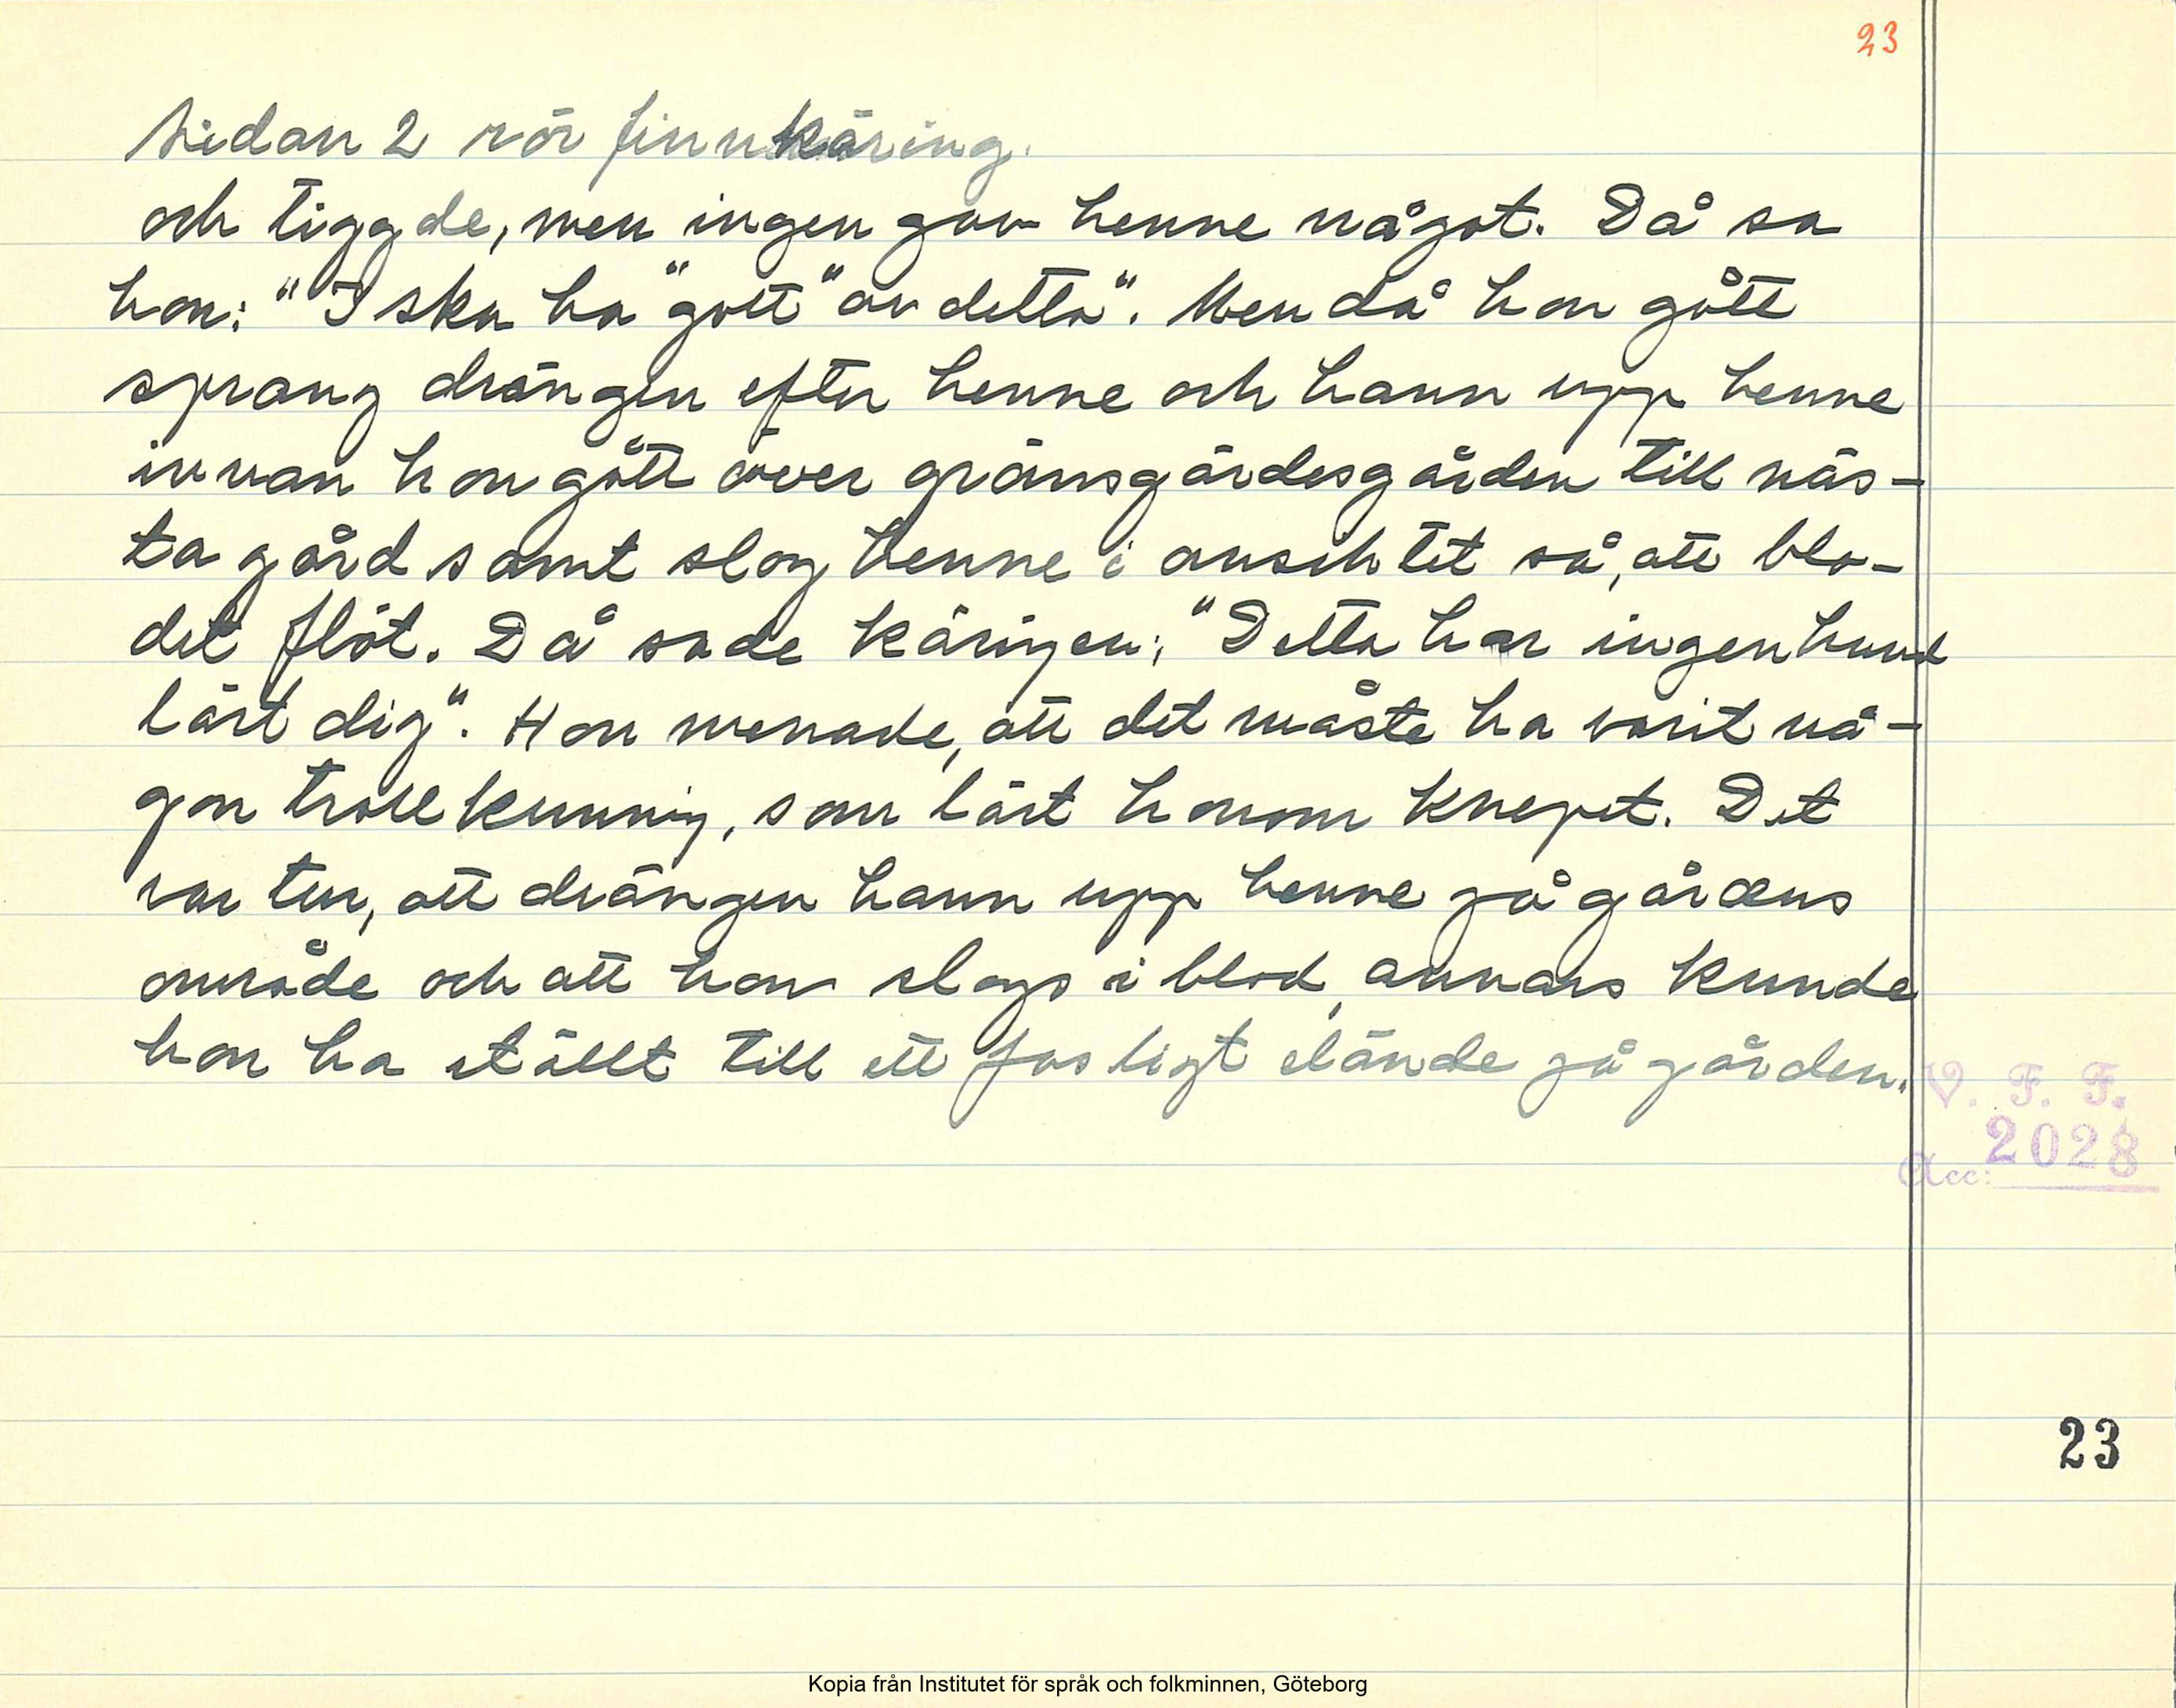 23
Sidan 2 rör finnkäring.
och tiggde, men ingen gav henne något. Då sa
hon: "I ska ha "gott" av detta". Men då hon gått
sprang drängen efter henne och hann upp henne
innan hon gått över gränsgärdesgården till näs-
ta gård samt slog henne i ansichtet så, att blo-
det flöt. Då sade käringen: "Detta har ingen hund
lärt dig". Hon menade, att det måste ha varit nå-
gon trollkunnig, som lärt honom knepet. Det
var tur, att drängen hann upp henne på gårdens
område och att hon slogs i blod, annars kunde
hon ha ställt till ett fasligt elände på gården.
V. F. F.
Acc: 2028
23
Kopia från Institutet för språk och folkminnen, Göteborg